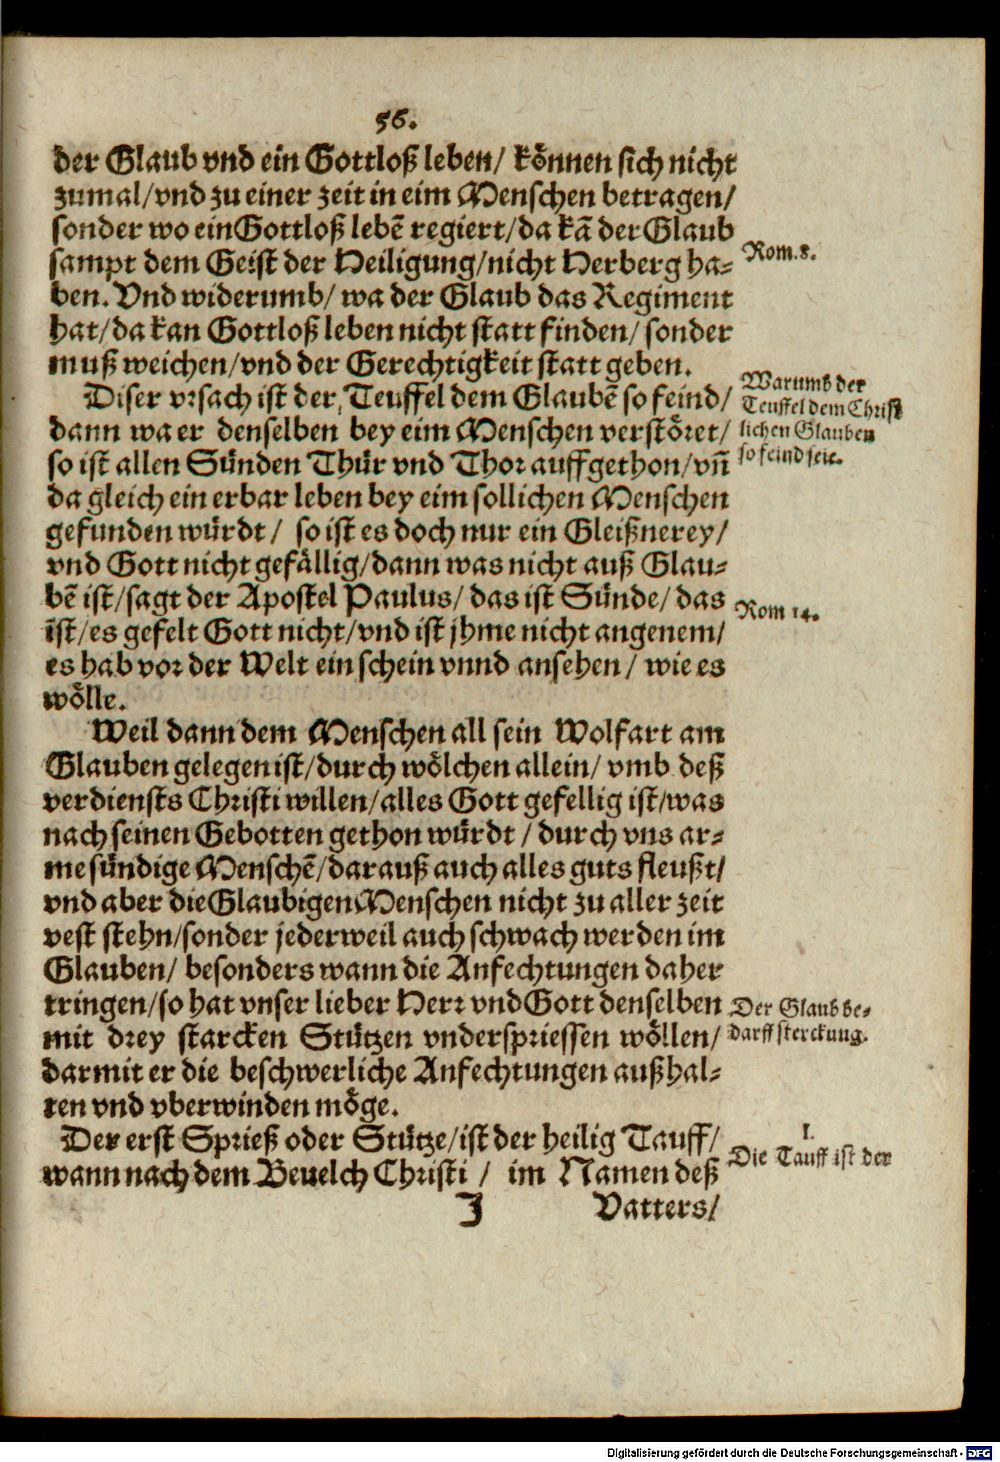 56.
der Glaub vnd ein Gottloß leben/ können sich nicht
zumal/vnd zu einer zeit in eim Menschen betragen/
sonder wo ein Gottloß lebē regiert/da kā der Glaub
sampt dem Geist der Heiligung/nicht Herberg ha-
Rom. 8.
ben. Vnd widerumb/ wa der Glaub das Regiment
hat/da kan Gottloß leben nicht statt finden/ sonder
muß weichen/vnd der Gerechtigkeit statt geben.
Diser vrsach ist der Teuffel dem Glaubē so feind/
dann wa er denselben bey eim Menschen verstöret/
so ist allen Sünden Thür vnd Thor auffgethon/vñ
Warumb der
Teuffel dem Christ
lichen Glauben
so feind seie.
da gleich ein erbar leben bey eim sollichen Menschen
gefunden würdt/ so ist es doch nur ein Gleißnerey/
vnd Gott nicht gefällig/dann was nicht auß Glau-
bē ist/sagt der Apostel Paulus/ das ist Sünde/ das
Rom 14.
ist/es gefelt Gott nicht/vnd ist jhme nicht angenem/
es hab vor der Welt ein schein vnnd ansehen/ wie es
wölle.
Weil dann dem Menschen all sein Wolfart am
Glauben gelegen ist/durch wölchen allein/ vmb deß
verdiensts Christi willen/alles Gott gefellig ist/was
nach seinen Gebotten gethon würdt/ durch vns ar-
me sündige Menschē/darauß auch alles guts fleußt/
vnd aber die Glaubigen Menschen nicht zu aller zeit
vest stehn/sonder jederweil auch schwach werden im
Glauben/ besonders wann die Anfechtungen daher
tringen/so hat vnser lieber Herr vnd Gott denselben
mit drey starcken Stützen vnderspriessen wöllen/
Der Glaub be-
darff sterckung.
darmit er die beschwerliche Anfechtungen außhal-
ten vnd vberwinden möge.
Der erst Sprieß oder Stütze/ist der heilig Tauff/
wann nach dem Beuelch Christi / im Namen deß
I.
Die Tauff ist der
J
Vatters/
Digitalisierung gefördert durch die Deutsche Forschungsgemeinschaft - DFG